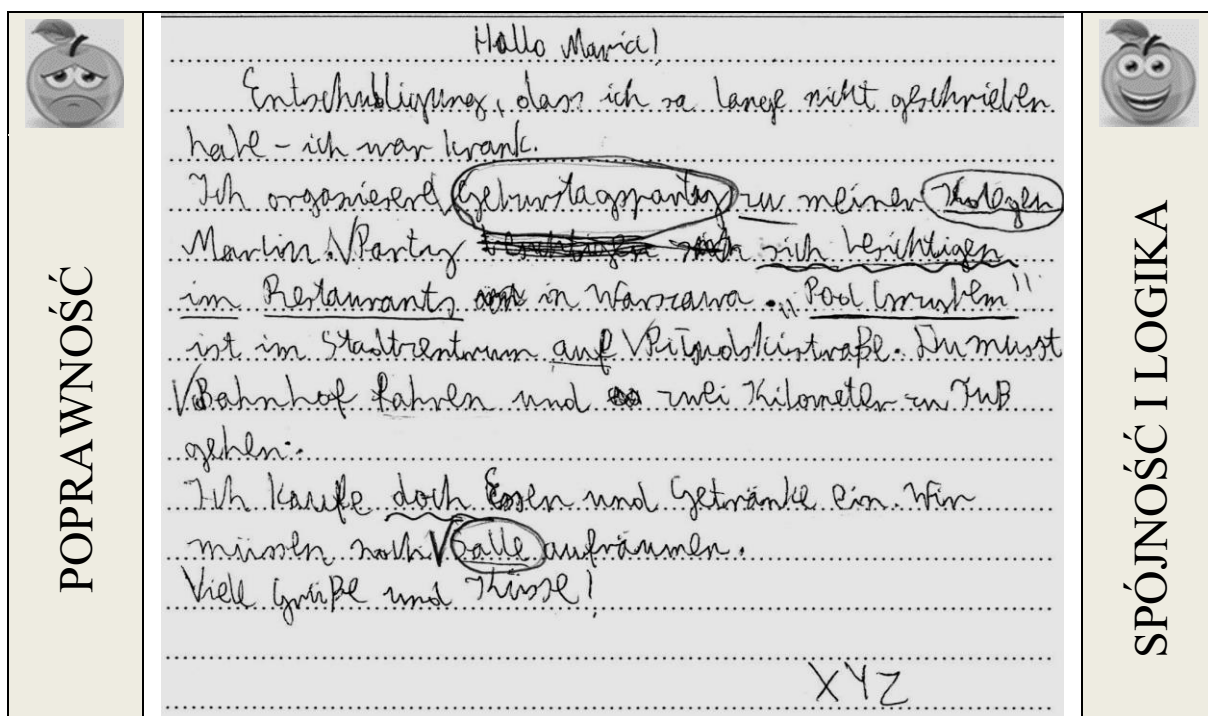 POPRAWNOŚĆ
Hallo Maria!
Entschubligung, dass ich so lange nicht geschrieben
habe – ich war krank.
Ich organisiere Geburstagsparty zu meiner Kolegen
Martin. Party sich besichtigen
im Restaurants in Warszawa. "Pod Gruszkem"
ist im Stadtzentrum auf Piłsudskistraße. Du musst
Bahnhof fahren und zwei Kilometer zu Fuß
gehen.
Ich kaufe doch Essen und Getränke ein. Wir
müssen noch Salle aufräumen.
Viele Grüße und Küsse!
XYZ
SPÓJNOŚĆ I LOGIKA